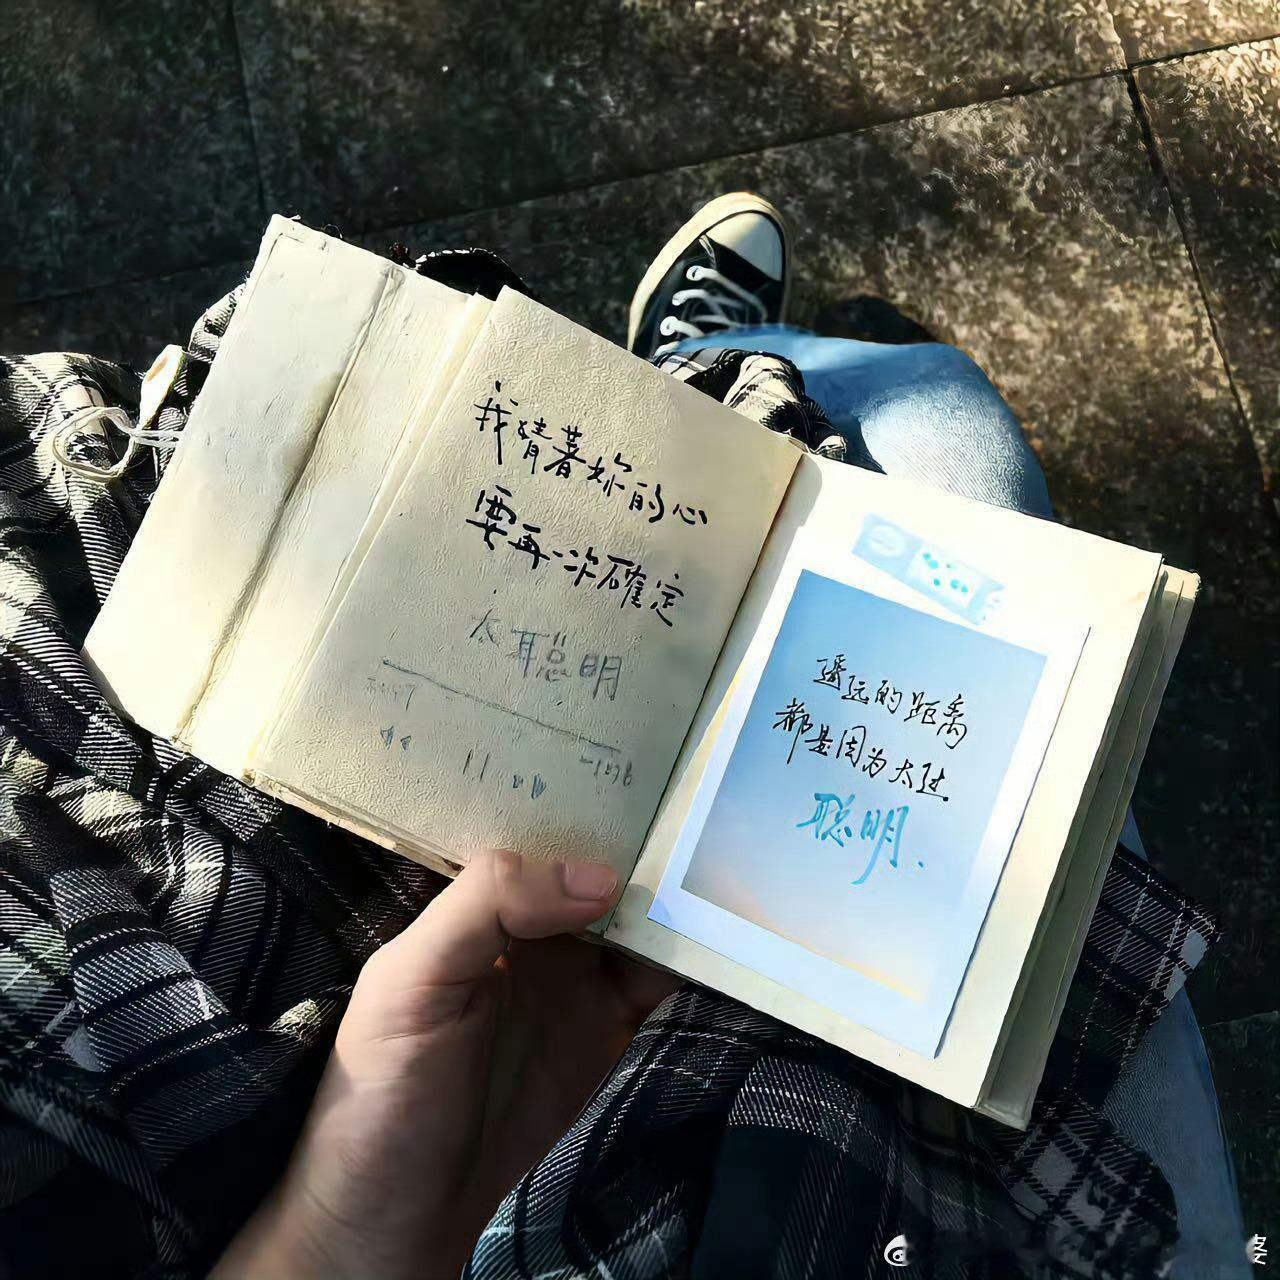 我猜著妳的心
要再一次確定
太聰明
遥远的距离
都是因为太过
聪明.